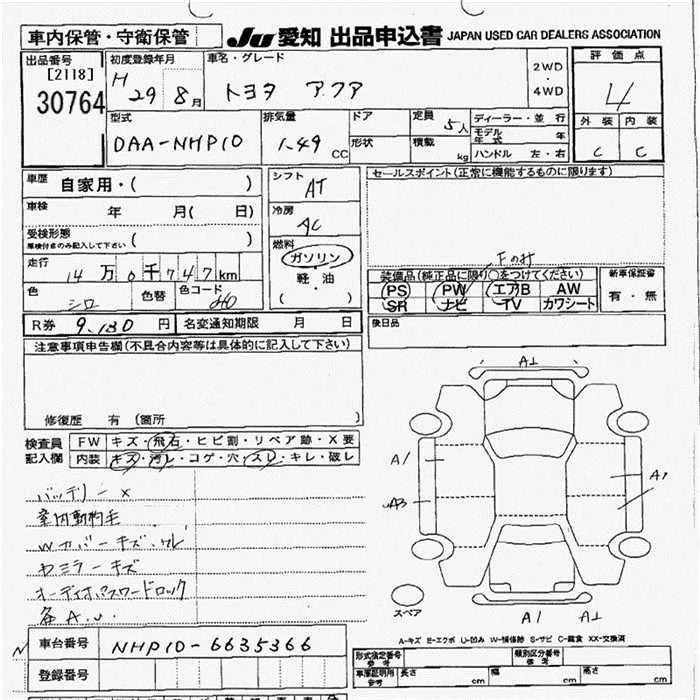 車内保管・守衛保管
JU 愛知 出品申込書 JAPAN USED CAR DEALERS ASSOCIATION
出品番号 [2118] 30764
初度登録年月 H 29 8月
車名・グレード トヨタ アクア
2WD ・ 4WD
評価点 4
外装 内装
C C
型式 DAA-NHP10
排気量 1.49 CC
ドア
形状
定員 5人
積載 kg
ディーラー・並行
モデル年式 年
ハンドル 左・右
車歴 自家用・( )
車検 年 月( 日)
受検形態 ( )
車検付きのみ記入して下さい
走行 14万0千747km
色 シロ 色替 色コード 040
シフト AT
冷房 AC
燃料 ガソリン・軽・油 ( )
セールスポイント(正常に機能するものに限ります)
装備品(純正品に限り○をつけてください)
PS PW エアB AW
SR ナビ TV カワシート
新車保証書 有・無
後日品
R券 9,130円 名変通知期限 月 日
注意事項申告欄(不具合内容等は具体的に記入して下さい)
修復歴 有 (箇所 )
検査員記入欄
FW キズ・飛石・ヒビ割・リペア跡・X要
内装 キズ・汚レ・コゲ・穴・スレ・キレ・破レ
バッテリー X
室内動物毛
Wカバーキズ・ワレ
ドミラーキズ
オーディオパスワードロック
各A.U.
A1
A1
A3
A1
スペア
A1 A1
A-キズ E-エクボ U-凹み W-補修跡 S-サビ C-腐食 XX-交換済
車台番号 NHP10-6635366
登録番号
型式指定番号 参考
類別区分番号 参考
車庫証明用 参考 長さ cm 幅 cm 高さ cm